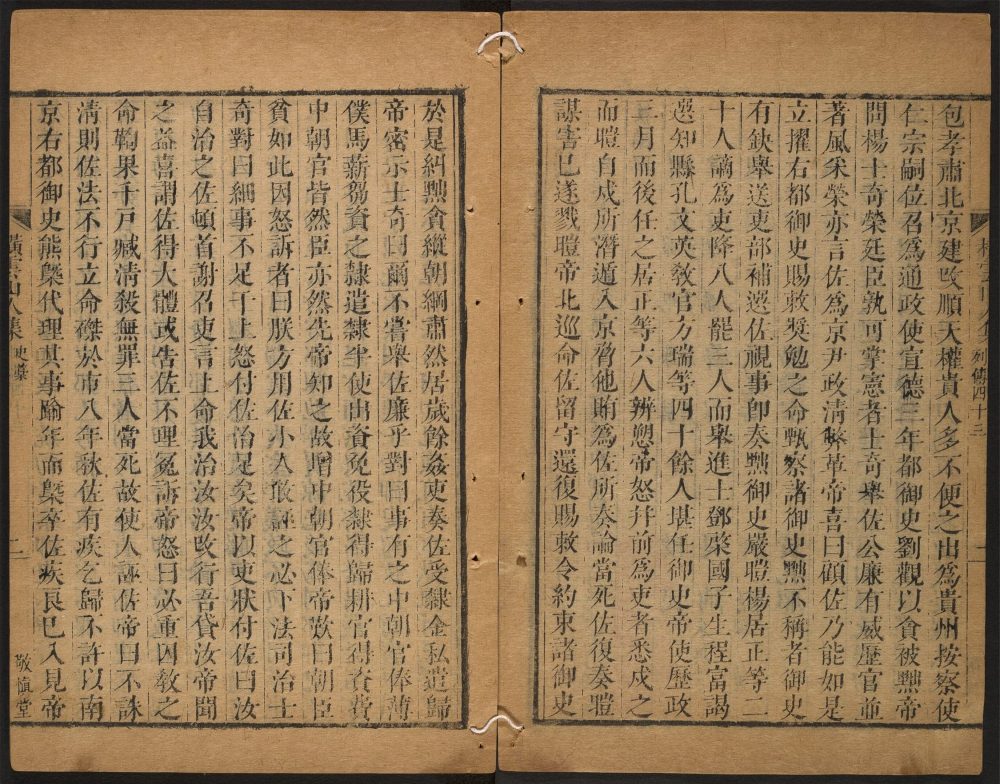 包孝肅北京建改順天權貴人多不便之出爲貴州按察使
仁宗嗣位召爲通政使宣德三年都御史劉觀以貪被黜帝
問楊士奇榮廷臣孰可掌憲者士奇舉佐公廉有威歷官並
著風采榮亦言佐爲京尹政清弊革帝喜曰顧佐乃能如是
立擢右都御史賜敕奬勉之命甄察諸御史黜不稱者御史
有缺舉送吏部補選佐視事卽奏黜御史嚴暟楊居正等二
十人謫爲吏降八人罷三人而舉進士鄧棨國子生程富謁
選知縣孔文英敎官方瑞等四十餘人堪任御史帝使歷政
三月而後任之居正等六人辨愬帝怒并前爲吏者悉戍之
而暟自戍所潛遁入京脅他賄爲佐所奏論當死佐復奏暟
謀害巳遂戮暟帝北巡命佐留守還復賜敕令約束諸御史
列傳四十三
一
於是糾黜貪縱朝綱肅然居歲餘姦吏奏佐受隸金私遣歸
帝密示士奇曰爾不嘗舉佐廉乎對曰事有之中朝官俸薄
僕馬薪芻資之隸遣隸半使出資免役隸得歸耕官得資費
中朝官皆然臣亦然先帝知之故增中朝官俸帝歎曰朝臣
貧如此因怒訴者曰朕方用佐小人敢誣之必下法司治士
奇對曰細事不足干上怒付佐治足矣帝以吏狀付佐曰汝
自治之佐頓首謝召吏言上命我治汝汝改行吾貸汝帝聞
之益喜謂佐得大體或告佐不理冤訴帝怒曰必重囚敎之
命鞫果千戶臧淸殺無罪三人當死故使人誣佐帝曰不誅
淸則佐法不行立命磔於市八年秋佐有疾乞歸不許以南
京右都御史熊槩代理其事踰年而槩卒佐疾良巳入見帝
橫雲山人集
史藁
二
敬愼堂